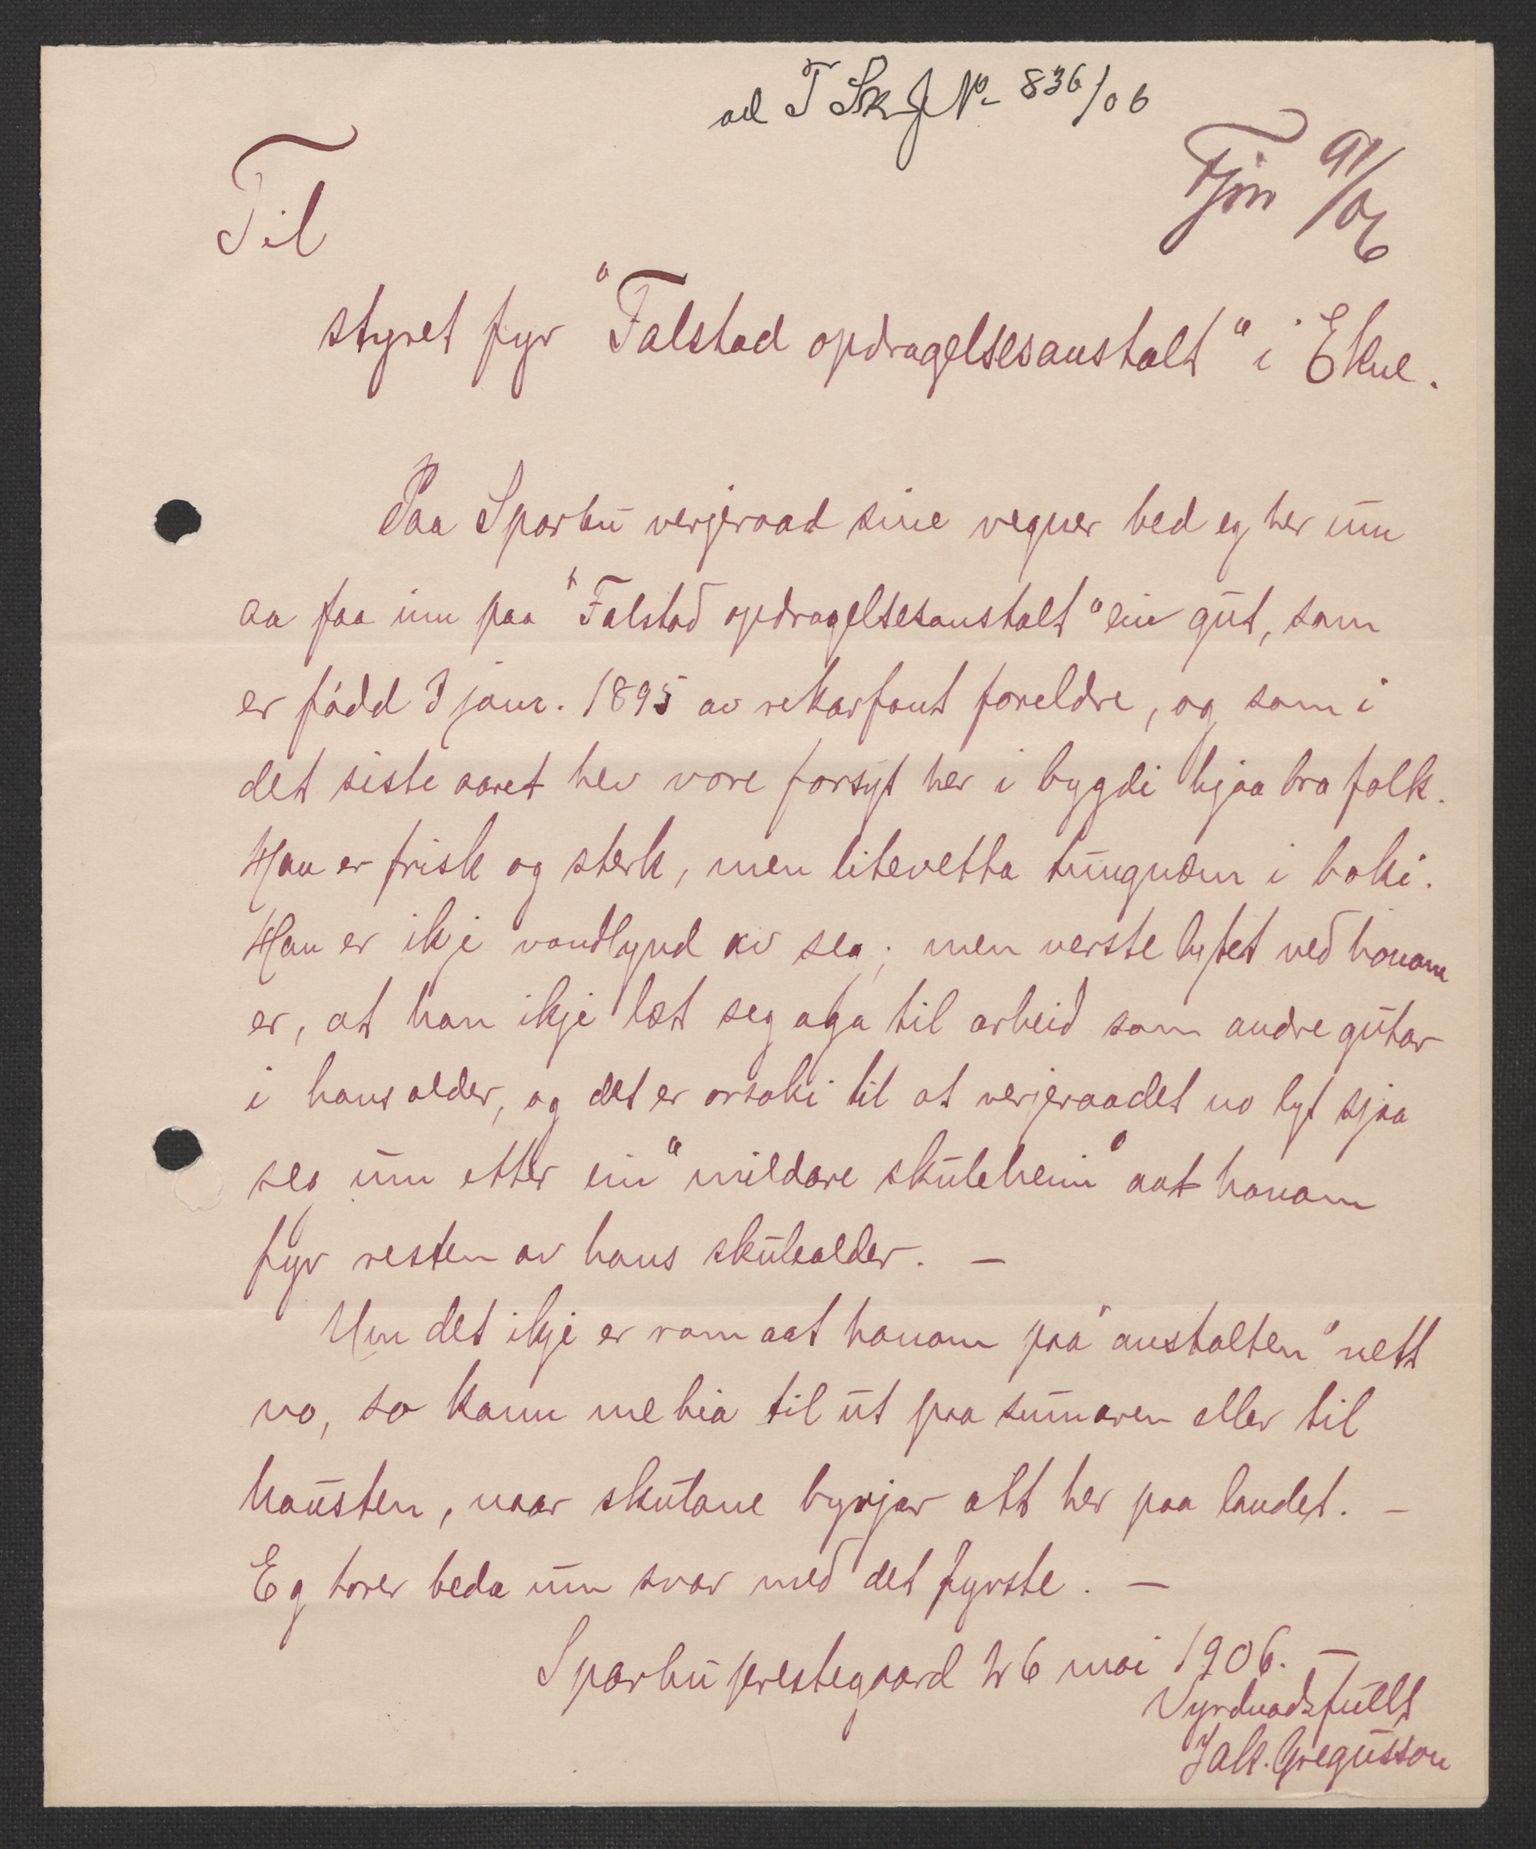 ad T Sk J No 836/06
Tjn 91/06
Til
styret fyr "Falstad opdragelsesanstalt" i Ekne.
Paa Sparbu verjeraad sine vegner bed eg her um
aa faa inn paa "Falstad opdragelsesanstalt" ein gut, som
er fødd 3 janr. 1895 av rekarfant foreldre, og som i
det siste aaret hev vore forsytt her i bygdi hjaa bra folk.
Han er frisk og sterk, men litevetta tungnæm i boki.
Han er ikje vondlynd av seg; men verste lytet ved honom
er, at han ikje læt seg aga til arbeid som andre gutar
i hans alder, og det er orsaki til at verjeraadet no lyt sjaa
seg um etter ein "mildare skuleheim" aat honom
fyr resten av hans skulealder. —
Um det ikje er rom aat honom paa "anstalten" nett
no, so kann me bia til ut paa sumaren eller til
hausten, naar skulane byrjar att her paa landet. —
Eg torer beda um svar med det fyrste. —
Sparbu prestegaard 26 mai 1906. —
Vyrdnadsfullt
Jak. Gregusson